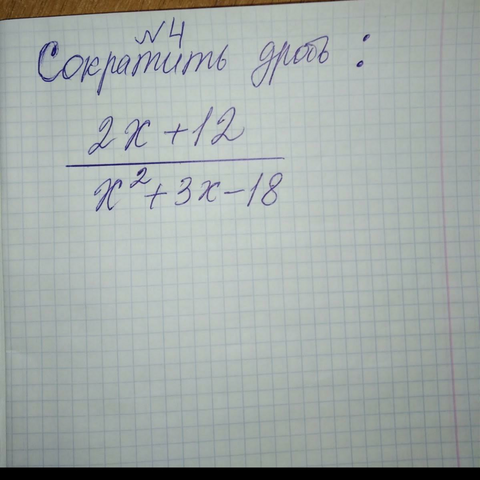 №4
Сократить дробь:
2x+12
x²+3x-18